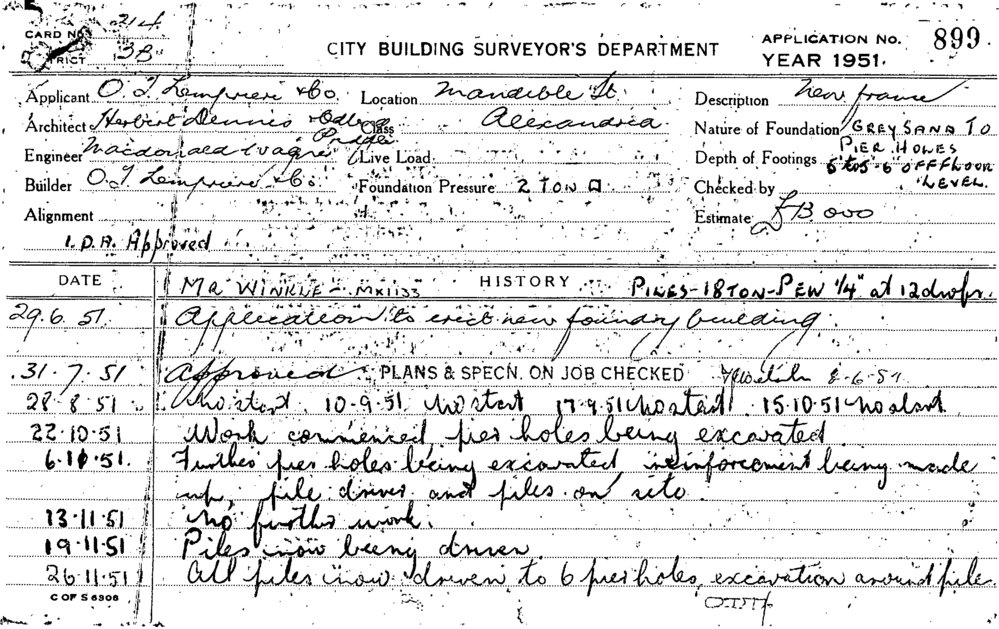 CARD No. 214
DISTRICT 3B
CITY BUILDING SURVEYOR'S DEPARTMENT
APPLICATION No. 899
YEAR 1951.
Applicant O. T. Lempriere & Co. Location Mandible St. Description New frame
Architect Herbert Dennis Class Alexandria. Nature of Foundation GREY SAND TO
PIER HOLES
Engineer Macdonald Wagner Live Load Depth of Footings OFF FLOOR
LEVEL.
Builder O. T. Lempriere & Co. Foundation Pressure 2 TON □ Checked by
Alignment Estimate £13 000
I.D.A. Approved
DATE HISTORY
MR WINKLE - PILES - 18 TON - PEN 1/4" at 12
29.6.51. Application to erect new foundry building.
31.7.51 Approved PLANS & SPECN. ON JOB CHECKED
28.8.51 No start. 10-9-51 No start 17.9.51 No start. 15.10.51 No start.
22.10.51 Work commenced, pier holes being excavated.
6.11.51. Further pier holes being excavated, reinforcement being made
up, pile driver and piles on site.
13.11.51 No further work.
19.11.51 Piles now being driven.
26.11.51 All piles now driven to 6 pier holes, excavation around pile
C OF S 6306